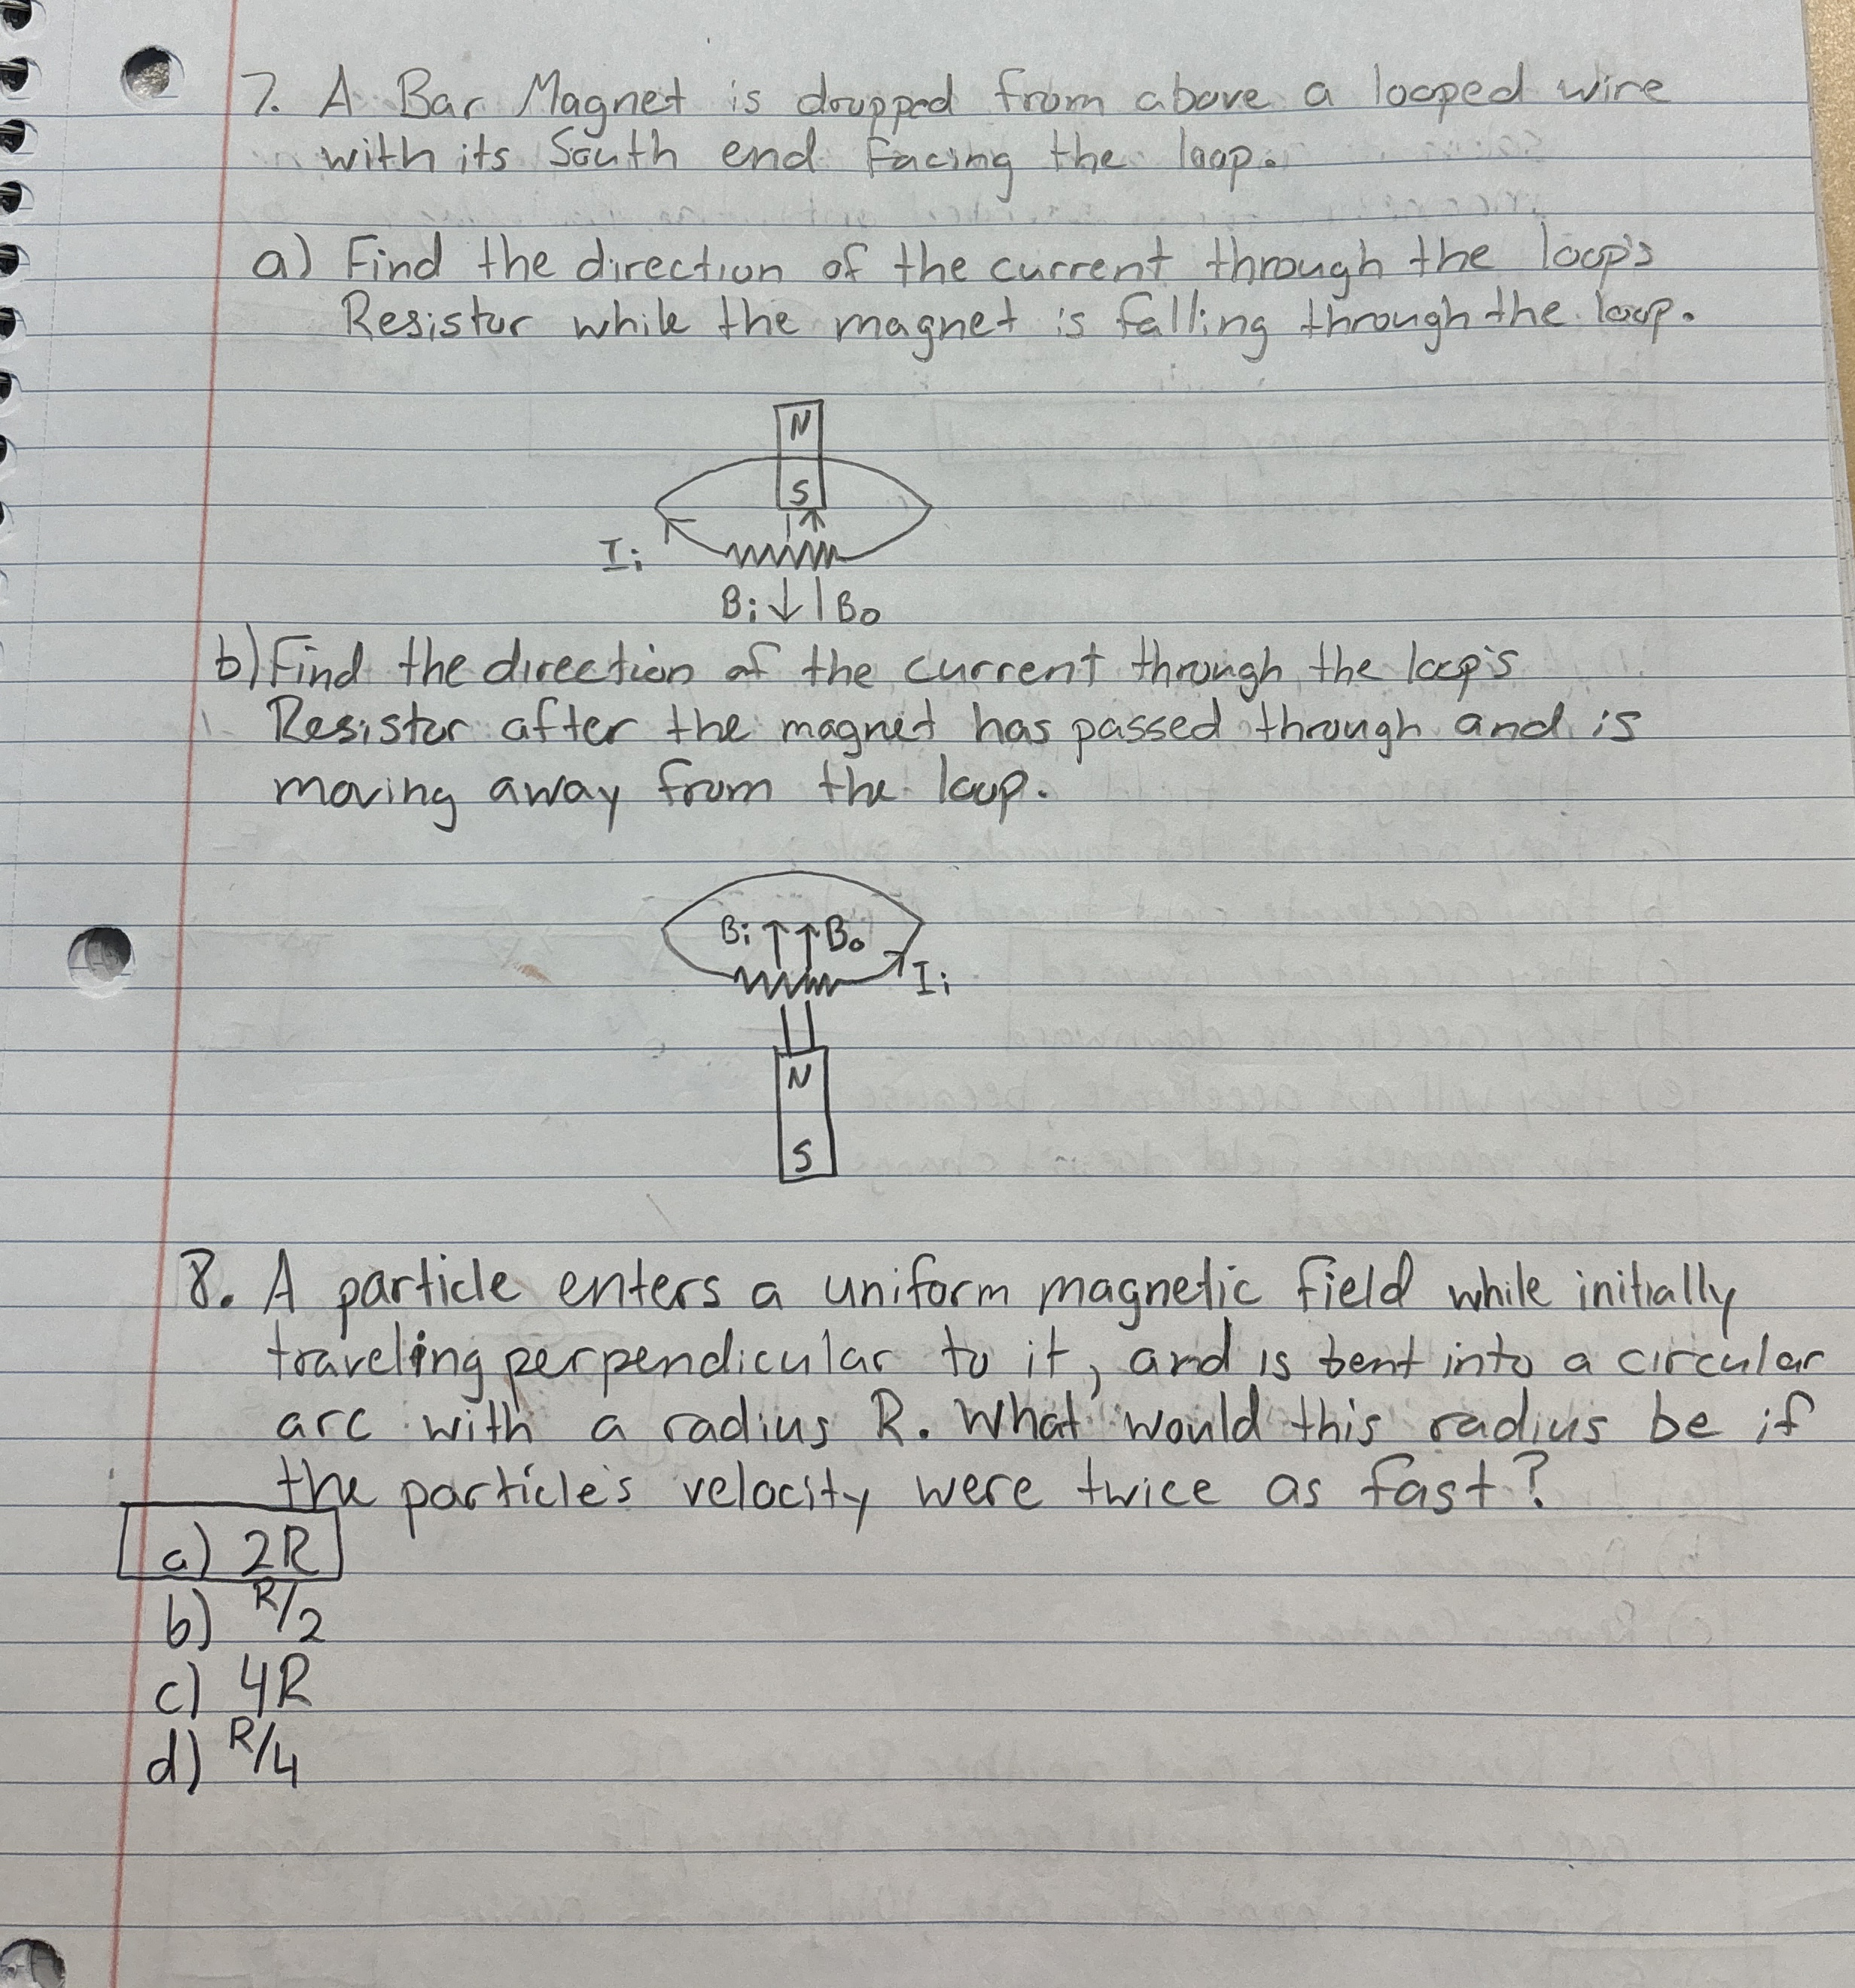 7. A Bar Magnet is dropped from above a looped wire
with its South end facing the loop.
a) Find the direction of the current through the loop's
Resistor while the magnet is falling through the loop.
N
S
Ii
Bi Bo
b) Find the direction of the current through the loop's
Resistor after the magnet has passed through and is
moving away from the loop.
Bi Bo
Ii
N
S
8. A particle enters a uniform magnetic field while initially
traveling perpendicular to it, and is bent into a circular
arc with a radius R. What would this radius be if
the particle's velocity were twice as fast?
a) 2R
b) R/2
c) 4R
d) R/4